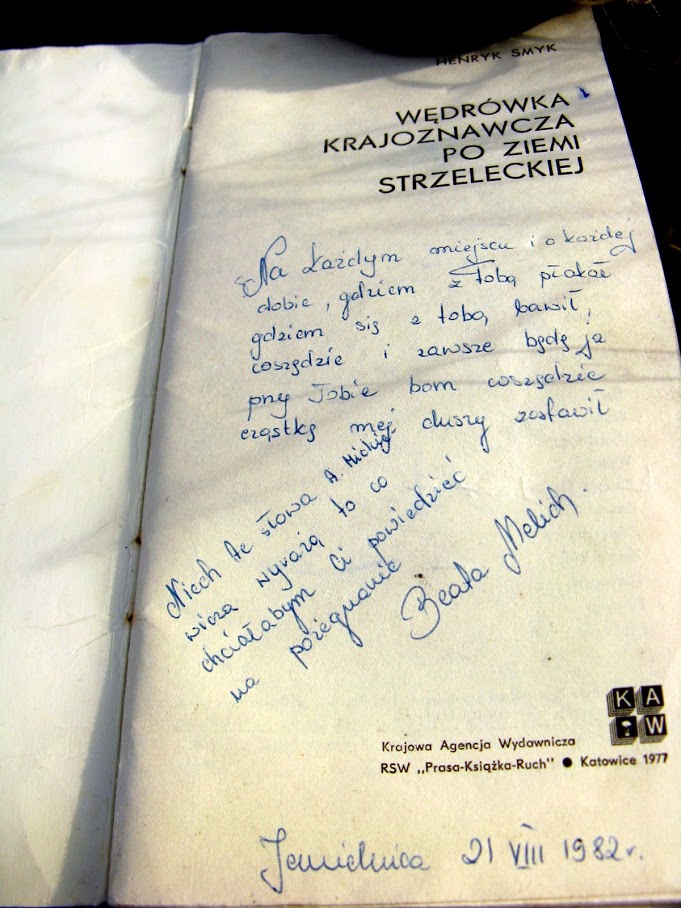 HENRYK SMYK
WĘDRÓWKA
KRAJOZNAWCZA
PO ZIEMI
STRZELECKIEJ
Na każdym miejscu i o każdej
dobie, gdziem z Tobą płakał
gdziem się z tobą bawił,
wszędzie i zawsze będę ja
przy Tobie bom wszędzie
cząstkę mej duszy zostawił
Niech te słowa A. Mickie
wicza wyrażą to co
chciałabym Ci powiedzieć
na pożegnanie
Beata Melich.
KAW
Krajowa Agencja Wydawnicza
RSW „Prasa-Książka-Ruch" ● Katowice 1977
Jemielnica 21 VIII 1982 r.